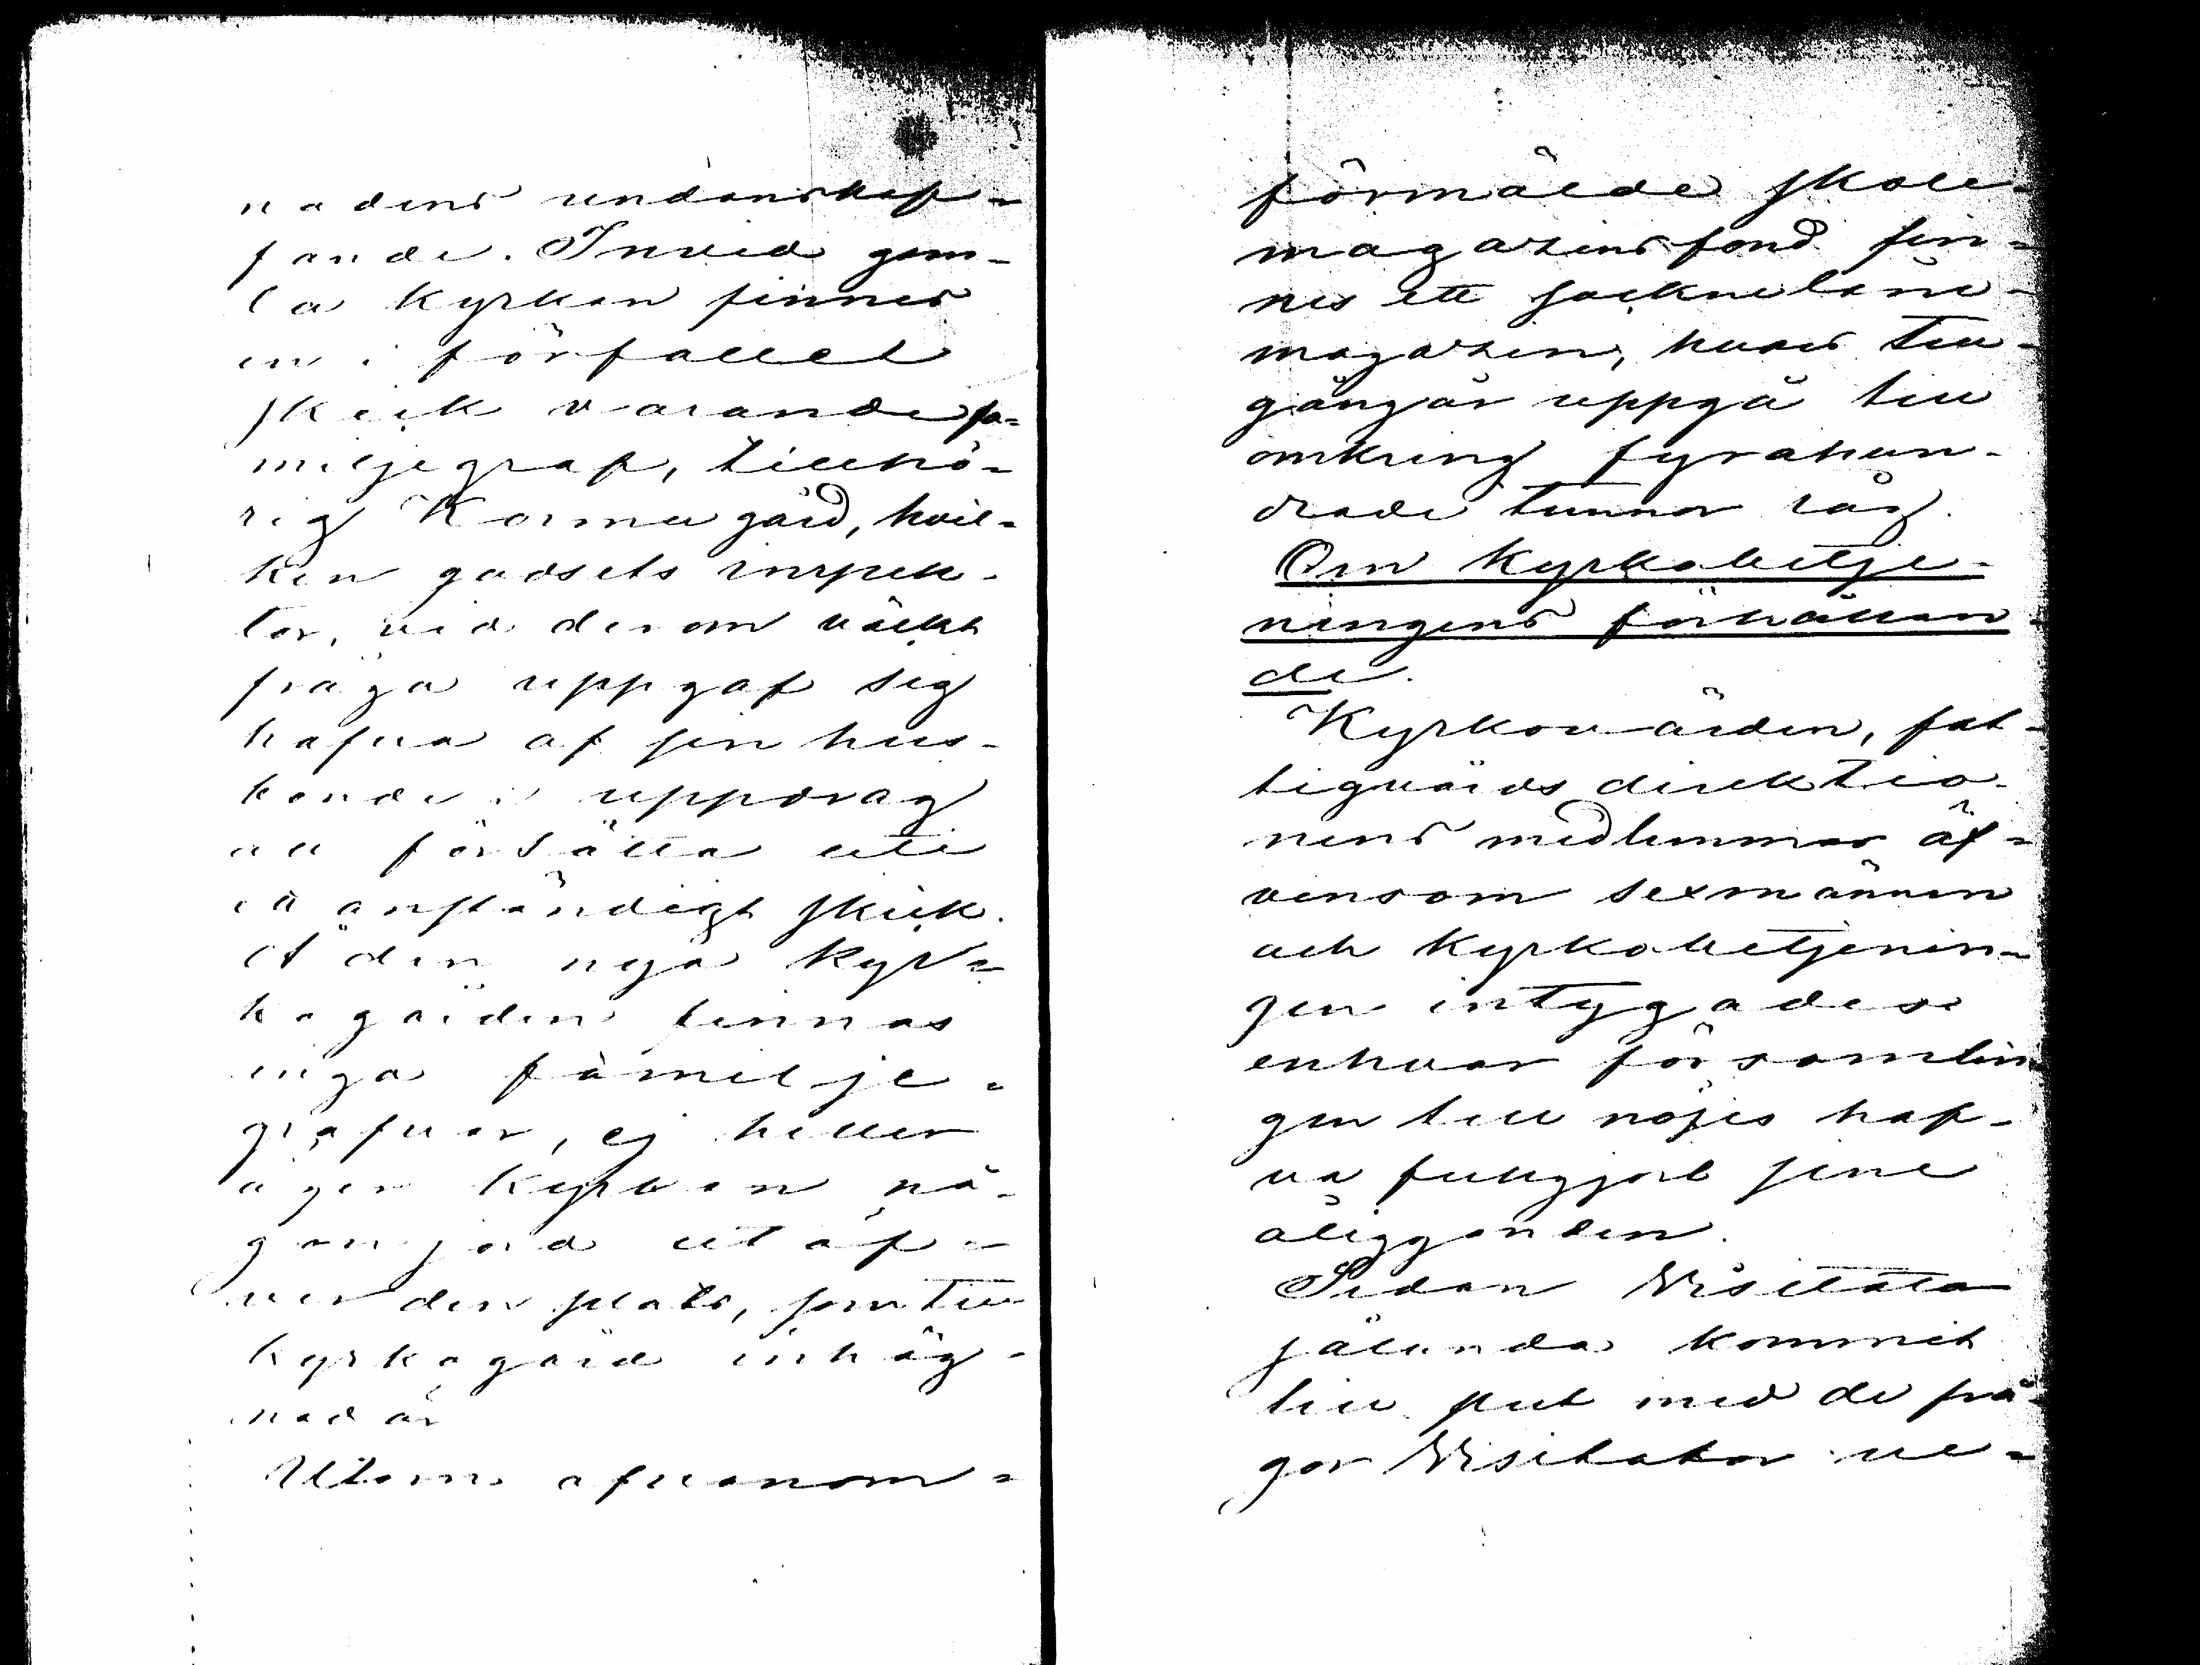 nadens undanskaf-
fande. Invid gam-
la kyrkan finnes
en i förfallet
skick varande fa-
miljegraf, tillhö-
rig Karmugård, hvil-
ken godsets inspek-
tor, vid derom väckt
fråga uppgaf sig
hafva af sin hus-
bonde i uppdrag
att försätta uti
ett anständigt skick.
Å den nya kyr-
kogården finnas
inga familje-
grafvar, ej heller
äger kyrkan nå-
gon jord utöf-
ver den plats, som till
kyrkogård inhäg-
nad är
Utom ofvanom-
förmälde skole-
magazinsfond fin-
nes ett socknelåne-
magazin, hvars till-
gångar uppgå till
omkring fyrahun-
drade tunnor råg.
Om Kyrkobetje-
ningens förhållan-
de.
Kyrkovärden, fat-
tigvårds direktio-
nens medlemmar äf-
vensom sexmännen
och Kyrkobetjenin-
gen intygades
enhvar församlin
gen till nöjes haf-
va fullgjort sine
åligganden.
Sedan Visitator
sålunda kommit
till slut med de frå-
gor Visitator ve-